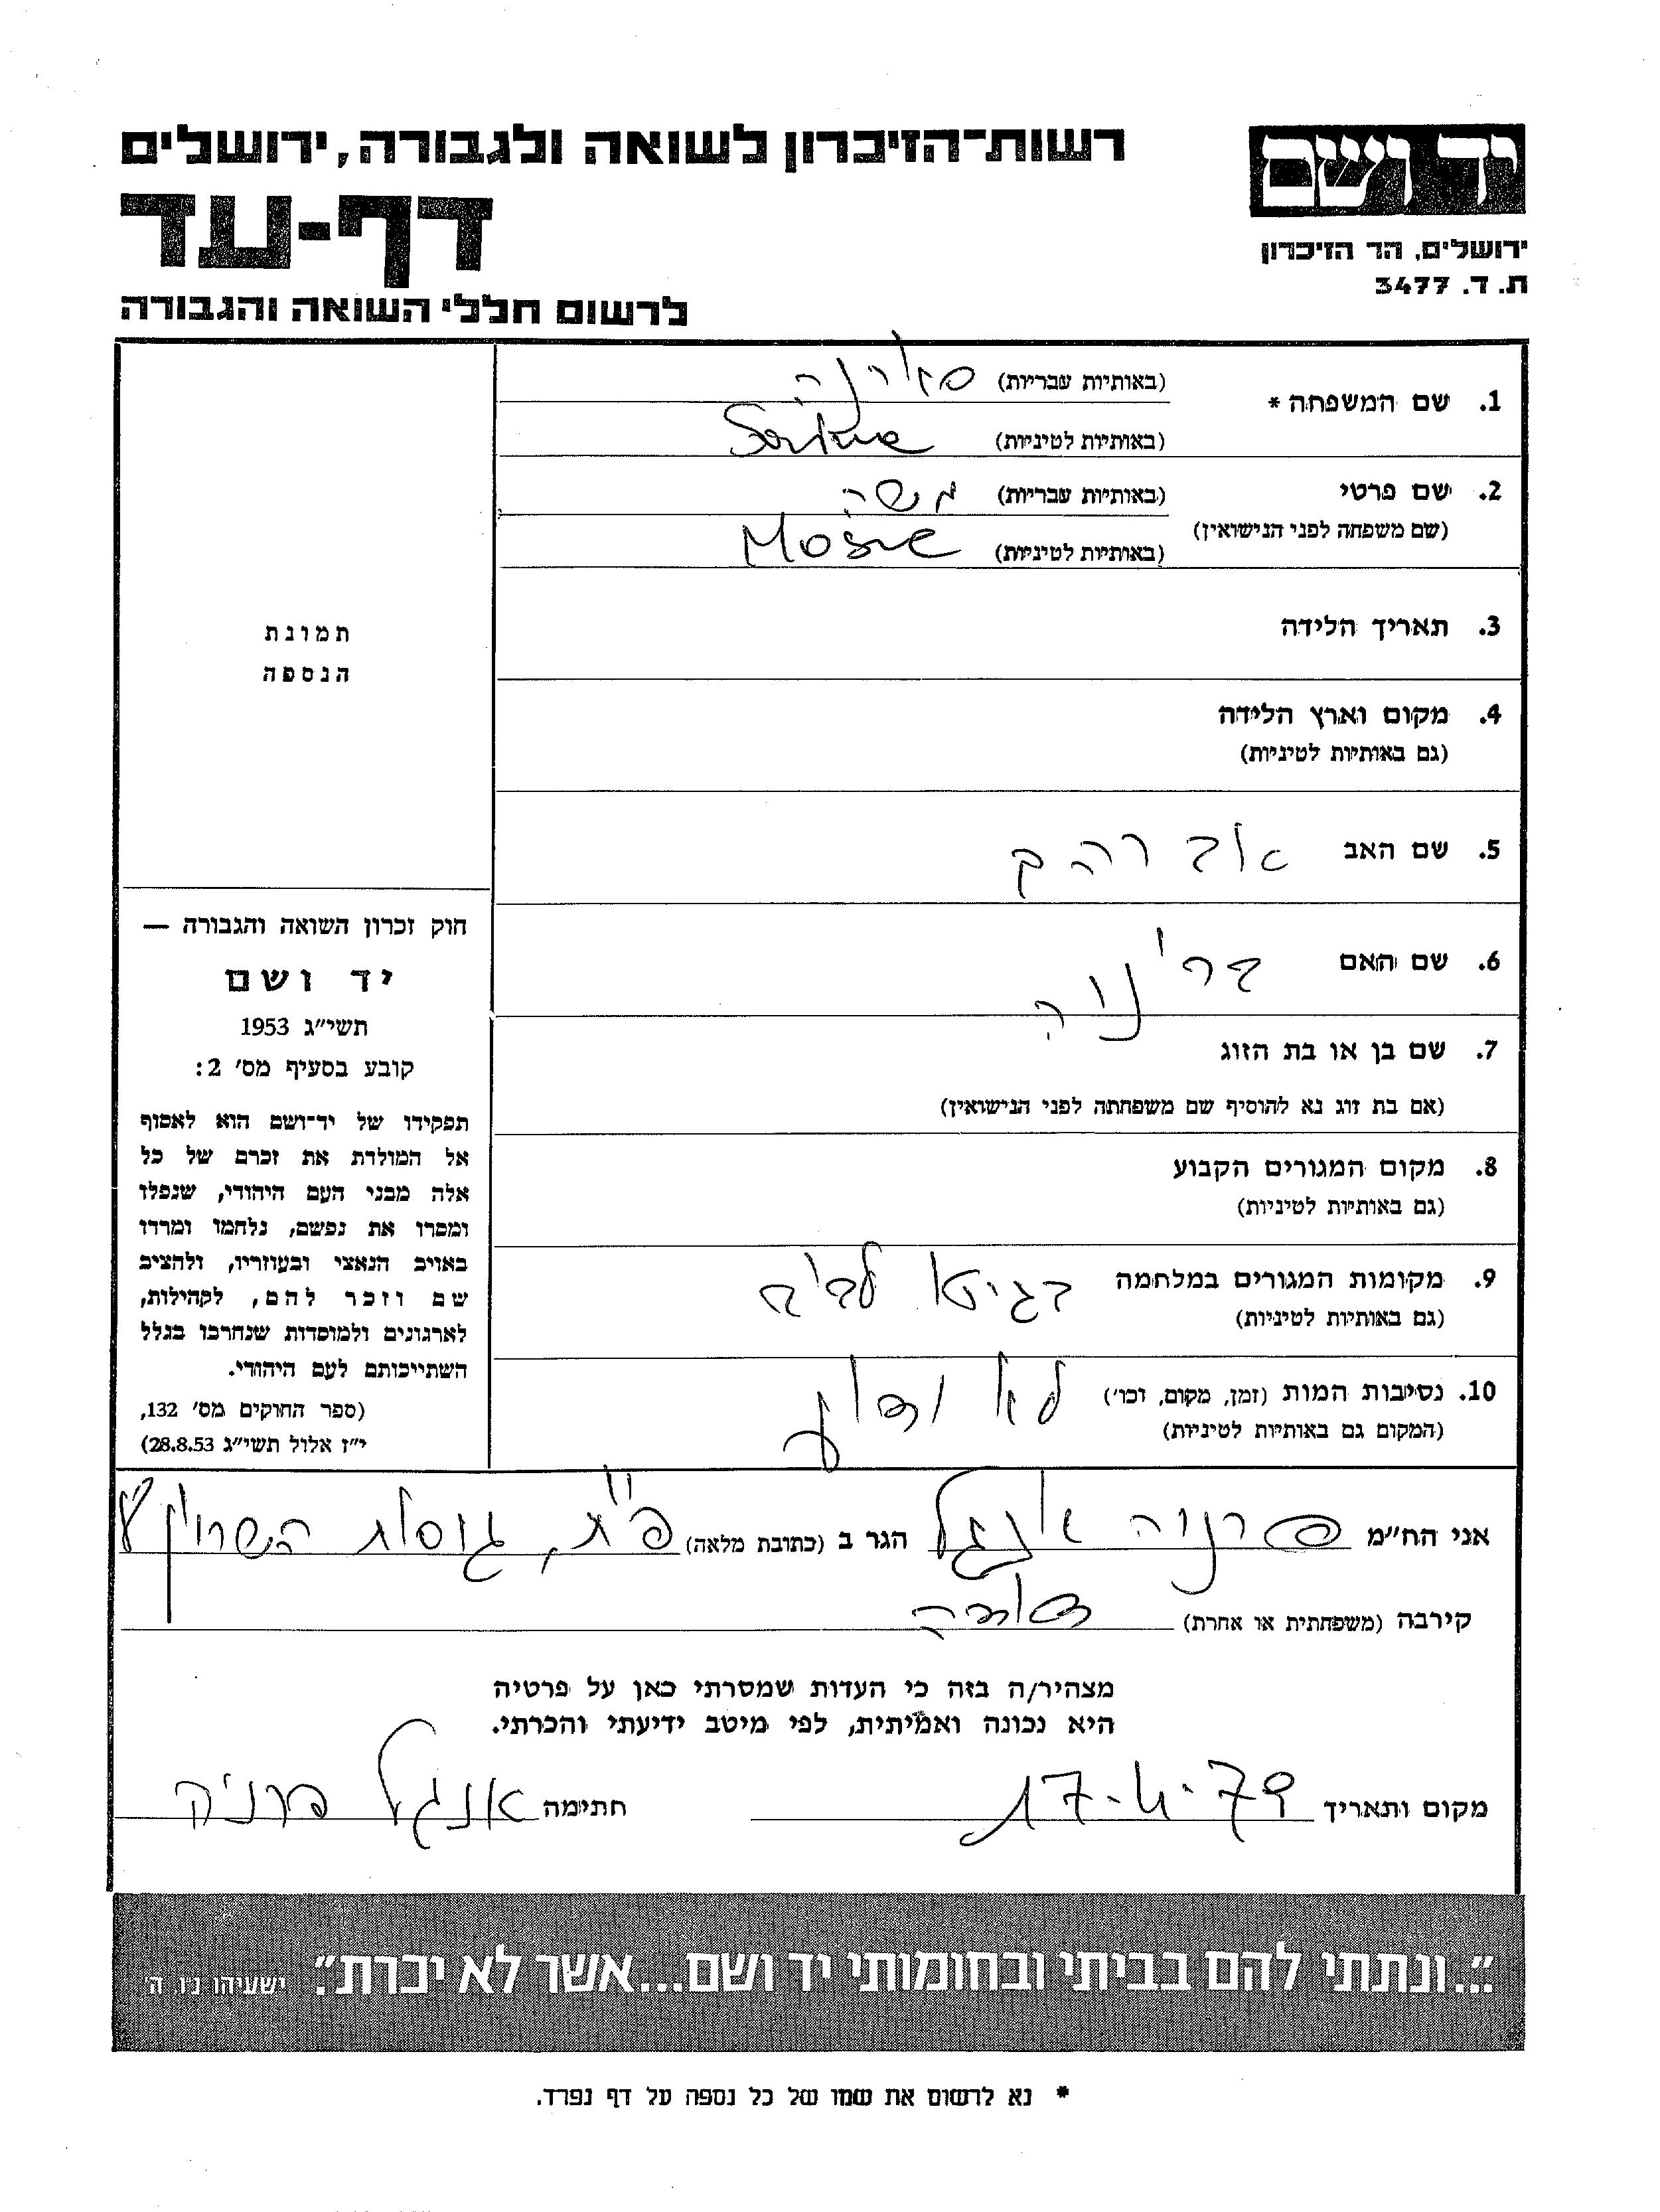 רשות־הזיכרון לשואה ולגבורה, ירושלים
דף-עד
לרשום חללי השואה והגבורה
יד ושם
ירושלים, הר הזיכרון
ת. ד. 3477
1. שם המשפחה *
(באותיות עבריות)
(באותיות לטיניות)
2. שם פרטי
(שם משפחה לפני הנישואין)
(באותיות עבריות) משה
(באותיות לטיניות) Mosze
3. תאריך הלידה
4. מקום וארץ הלידה
(גם באותיות לטיניות)
5. שם האב אברהם
6. שם האם
7. שם בן או בת הזוג
(אם בת זוג נא להוסיף שם משפחתה לפני הנישואין)
8. מקום המגורים הקבוע
(גם באותיות לטיניות)
9. מקומות המגורים במלחמה בגיטו לבוב
(גם באותיות לטיניות)
10. נסיבות המות (זמן, מקום, וכו') לא ידוע
(המקום גם באותיות לטיניות)
תמונת
הנספה
חוק זכרון השואה והגבורה —
יד ושם
תשי"ג 1953
קובע בסעיף מס' 2:
תפקידו של יד־ושם הוא לאסוף
אל המולדת את זכרם של כל
אלה מבני העם היהודי, שנפלו
ומסרו את נפשם, נלחמו ומרדו
באויב הנאצי ובעוזריו, ולהציב
שם וזכר להם, לקהילות,
לארגונים ולמוסדות שנחרבו בגלל
השתייכותם לעם היהודי.
(ספר החוקים מס' 132,
י"ז אלול תשי"ג 28.8.53)
אני הח"מ פרניה אנגל הגר ב (כתובת מלאה) פ"ת,
קירבה (משפחתית או אחרת) דודה
מצהיר/ה בזה כי העדות שמסרתי כאן על פרטיה
היא נכונה ואמיתית, לפי מיטב ידיעתי והכרתי.
מקום ותאריך חתימה אנגל פרניה
"...ונתתי להם בביתי ובחומותי יד ושם...אשר לא יכרת". ישעיהו נ"ו, ה'
* נא לרשום את שמו של כל נספה על דף נפרד.